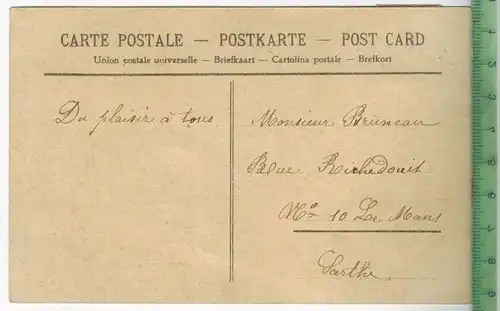 CARTE POSTALE — POSTKARTE — POST CARD
Union postale universelle — Briefkaart — Cartolina postale — Brefkort
Du plaisir à tous
Monsieur Bruneau
Rue Richedouit
No 10 Le Mans
Sarthe